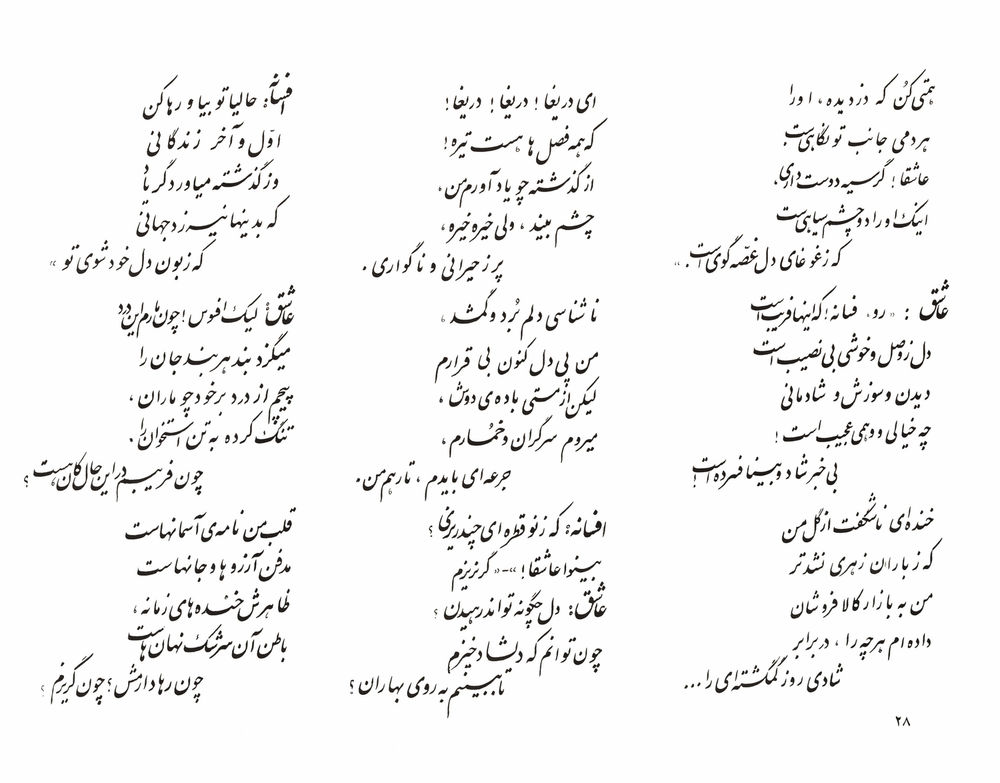 همّتی کُن که دزدیده، او را
هر دمی جانب تو نگاهی‌ست
عاشقا! گر سیه دوست داری،
اینک او را دو چشم سیاهی‌ست
که ز غوغای دل غصّه گوی است. »
عاشق : « رو، فسانه! که اینها فریب است
دل ز وصل و خوشی بی نصیب است
دیدن و سوزش و شادمانی
چه خیالی و وهمی عجیب است!
بی‌خبر شاد و بینا فسرده است!
خنده‌ای ناشکفت از گل من
که ز باران زهری نشد تر
من به بازار کالا فروشان
داده ام هر چه را ، در برابر
شادی روز گمگشته‌ای را...
ای دریغا! دریغا! دریغا!
که همه فصل ها هست تیره!
از گذشته چو یاد آورم من،
چشم بیند ، ولی خیره خیره،
پر ز حیرانی و ناگواری .
ناشناسی دلم بُرد و گم شد ،
من پی دل کنون بی قرارم
لیکن از مستی باده‌ی دوش ،
میروم سرگران و خمارم ،
جرعه‌ای بایدم ، تا رهم من.
افسانه: که ز نو قطره‌ای چند ریزی؟
بینوا عاشقا! » - « گر نریزم
عاشق: دل چگونه تواند رهیدن؟
چون توانم که دلشاد خیزم
تا ببینم به روی بهاران؟
افسانه: حالیا تو بیا و رها کن
اوّل و آخر زندگانی
وز گذشته میاور دگر یاد
که بدینها نیرزد جهانی
که زبون دل خود شوی تو »
عاشق: لیک افسوس! چون مارم این درد
میگزد بند هر بند جان را
پیچم از درد بر خود چو ماران ،
تنگ کرده به تن استخوان را.
چون فریبم در این حال کان هست؟
قلب من نامه‌ی آسمانهاست
مدفن آرزوها و جانهاست
ظاهرش خنده‌های زمانه ،
باطن آن سرشک نهان‌هاست
چون رها دارمش؟ چون گریزم؟
۲۸